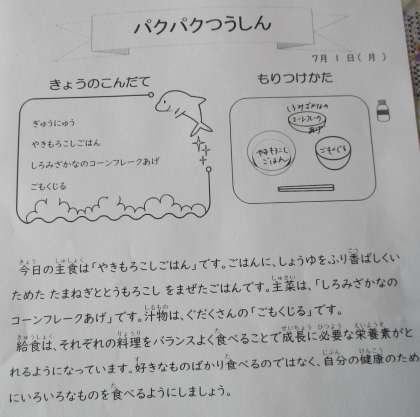 パクパクつうしん
7月 1日(月)
きょうのこんだて
もりつけかた
ぎゅうにゅう
やきもろこしごはん
しろみざかなのコーンフレークあげ
ごもくじる
しろみざかなの
コーンフレーク
あげ
やきもろこし
ごはん
ごもくじる
今日の主食は「やきもろこしごはん」です。ごはんに、しょうゆをふり香ばしくい
ためた たまねぎととうもろこし をまぜたごはんです。主菜は、「しろみざかなの
コーンフレークあげ」です。汁物は、ぐだくさんの「ごもくじる」です。
給食は、それぞれの料理をバランスよく食べることで成長に必要な栄養素がと
れるようになっています。好きなものばかり食べるのではなく、自分の健康のため
にいろいろなものを食べるようにしましょう。